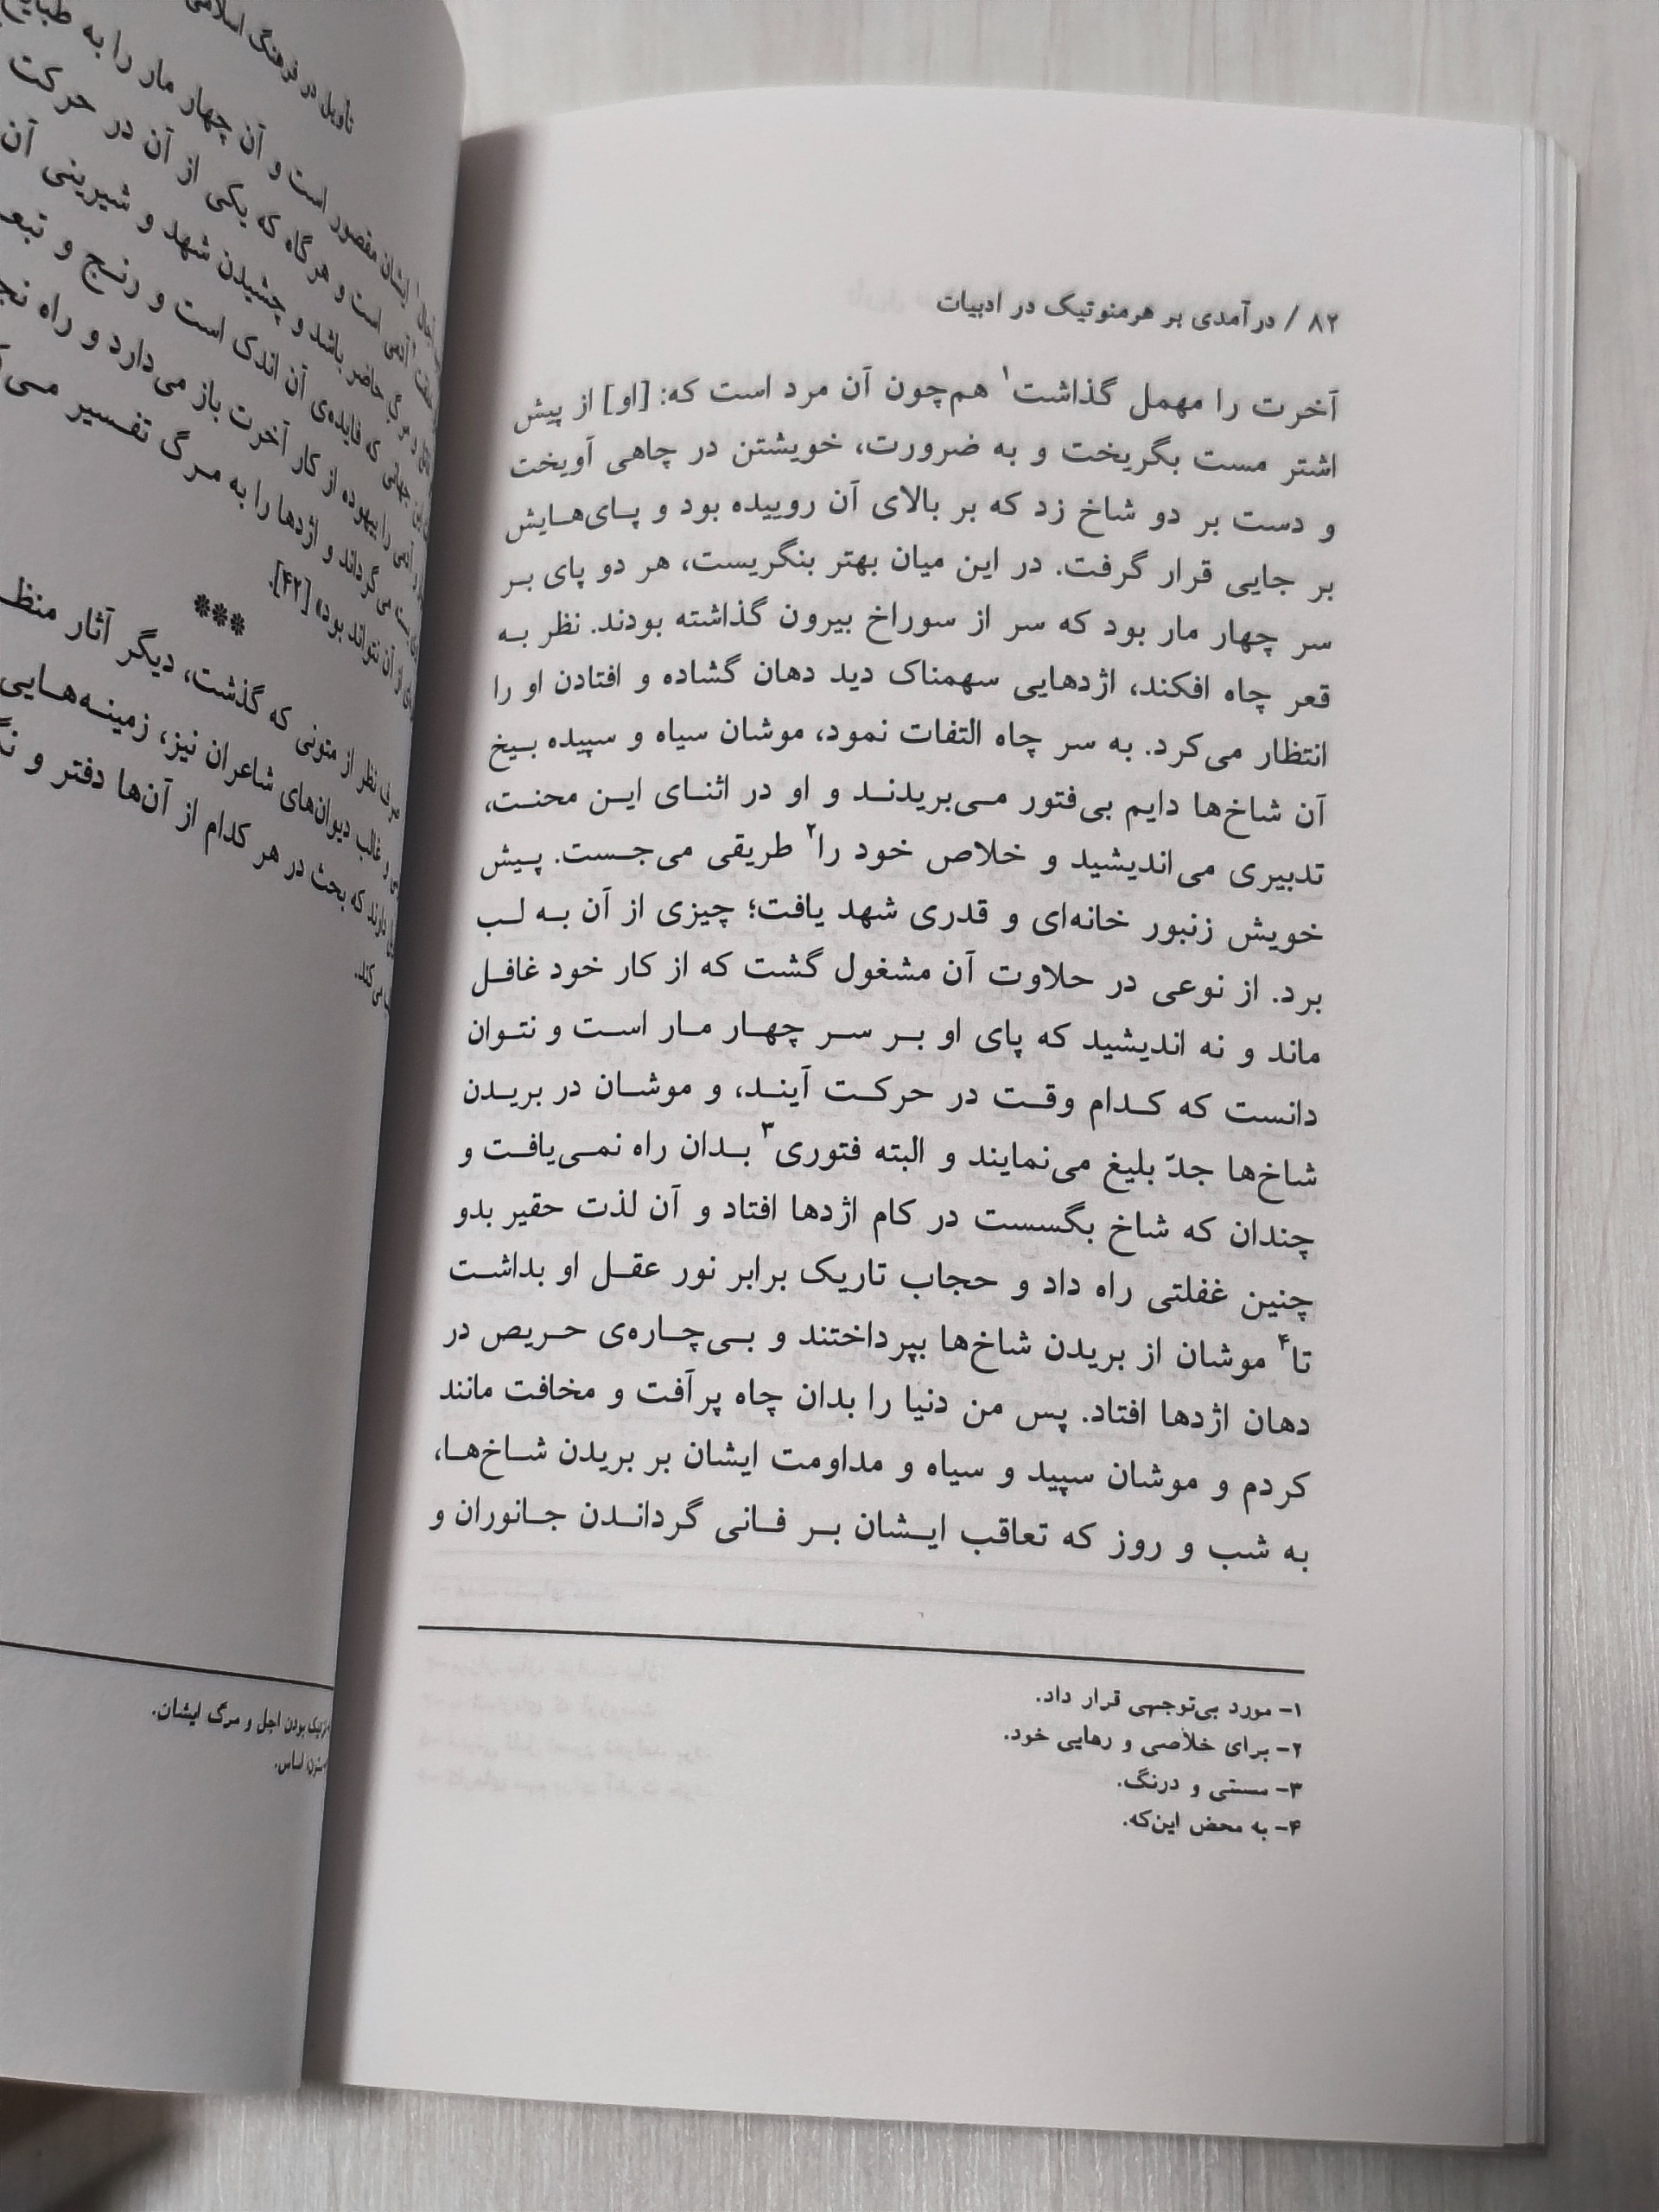 ۸۲ / درآمدی بر هرمنوتیک در ادبیات
آخرت را مهمل گذاشت۱ هم‌چون آن مرد است که: [او] از پیش
اشتر مست بگریخت و به ضرورت، خویشتن در چاهی آویخت
و دست بر دو شاخ زد که بر بالای آن روییده بود و پای‌هایش
بر جایی قرار گرفت. در این میان بهتر بنگریست، هر دو پای بر
سر چهار مار بود که سر از سوراخ بیرون گذاشته بودند. نظر به
قعر چاه افکند، اژدهایی سهمناک دید دهان گشاده و افتادن او را
انتظار می‌کرد. به سر چاه التفات نمود، موشان سیاه و سپیده بیخ
آن شاخ‌ها دایم بی‌فتور می‌بریدند و او در اثنای این محنت،
تدبیری می‌اندیشید و خلاص خود را۲ طریقی می‌جست. پیش
خویش زنبور خانه‌ای و قدری شهد یافت؛ چیزی از آن به لب
برد. از نوعی در حلاوت آن مشغول گشت که از کار خود غافل
ماند و نه اندیشید که پای او بر سر چهار مار است و نتوان
دانست که کدام وقت در حرکت آیند، و موشان در بریدن
شاخ‌ها جدّ بلیغ می‌نمایند و البته فتوری۳ بدان راه نمی‌یافت و
چندان که شاخ بگسست در کام اژدها افتاد و آن لذت حقیر بدو
چنین غفلتی راه داد و حجاب تاریک برابر نور عقل او بداشت
تا۴ موشان از بریدن شاخ‌ها بپرداختند و بی‌چاره‌ی حریص در
دهان اژدها افتاد. پس من دنیا را بدان چاه پرآفت و مخافت مانند
کردم و موشان سپید و سیاه و مداومت ایشان بر بریدن شاخ‌ها،
به شب و روز که تعاقب ایشان بر فانی گرداندن جانوران و
۱- مورد بی‌توجهی قرار داد.
۲- برای خلاصی و رهایی خود.
۳- سستی و درنگ.
۴- به محض این‌که.
تأویل در فرهنگ اسلامی
ایشان مقصور است و آن چهار مار را به
آدمی است و هرگاه که یکی از آن در حرکت
حاضر باشد و چشیدن شهد و شیرینی آن
که فایده‌ی آن اندک است و رنج و
را بیهوده از کار آخرت باز می‌دارد و راه
می‌گرداند و اژدها را به مرگ تفسیر
از آن نتواند بود» [۴۲].
***
نظر از متونی که گذشت، دیگر آثار
و غالب دیوان‌های شاعران نیز، زمینه‌هایی
دارند که بحث در هر کدام از آن‌ها دفتر و
می‌کند.
بودن اجل و مرگ ایشان.
اساس.